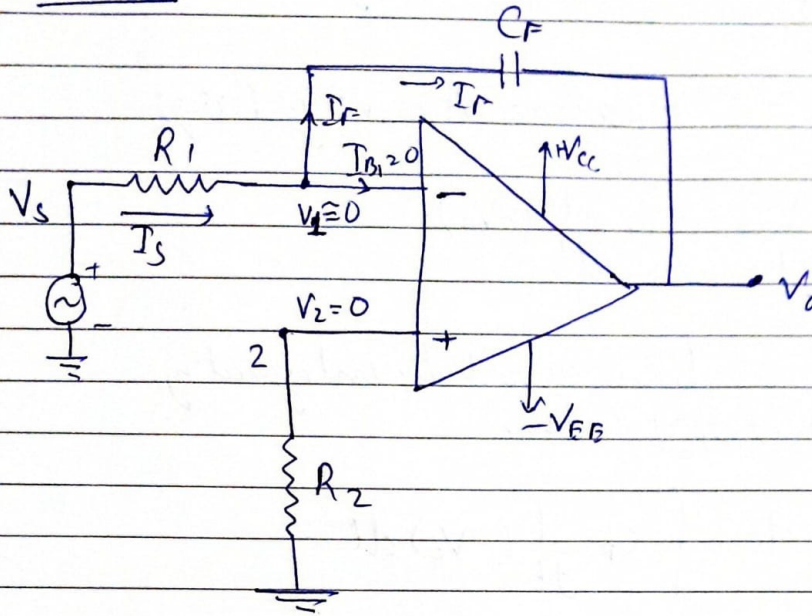 CF
IF
IF
R1
IB1=0
+VCC
VS
-
V1≅0
IS
+
V2=0
-
+
2
-VEE
R2